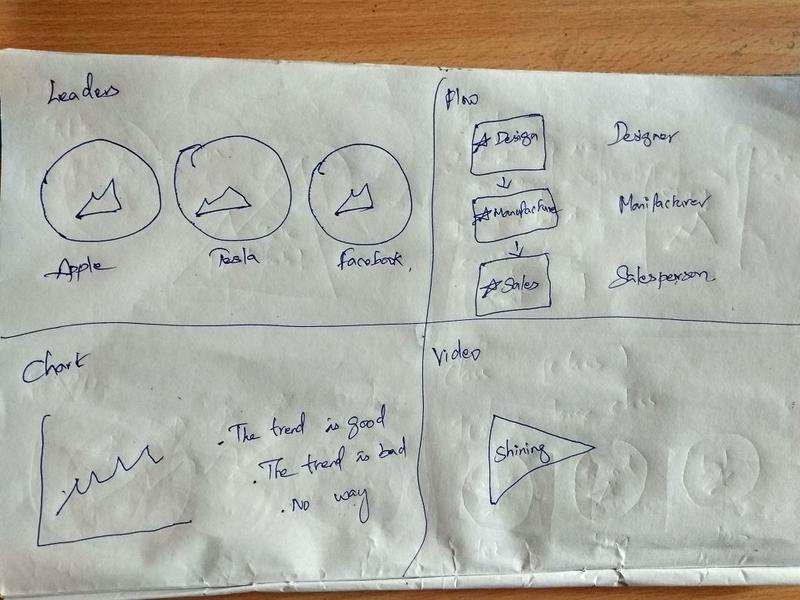 Leaders
Apple
Tesla
Facebook.
Flow
Design
Designer
Manufacture
Manifacturer
Sales
Salesperson
Chart
. The trend is good
. The trend is bad
. No way
Video
Shining